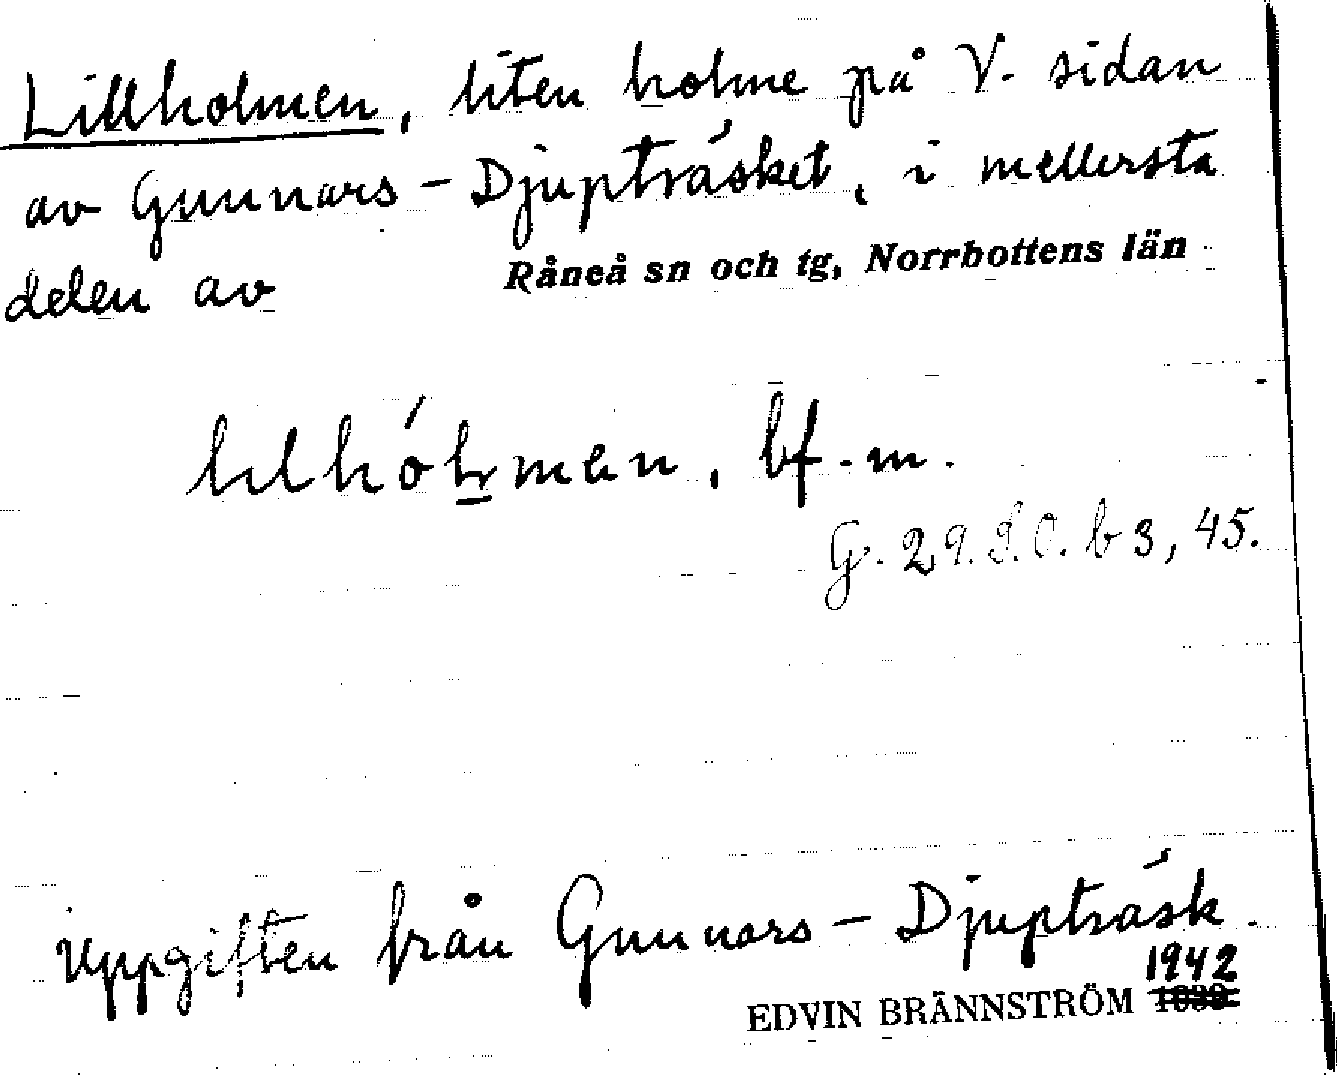 Lillholmen, liten holme på V. sidan
av Gunnars-Djupträsket, i mellersta
delen av Råneå sn och tg, Norrbottens län
bf. m.
G. 29. S. O. b 3, 45.
Uppgiften från Gunnars-Djupträsk.
1942
EDVIN BRÄNNSTRÖM